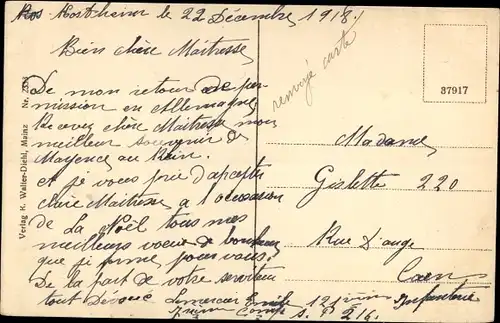 Kostheim le 22 Décembre 1918
Bien chère Maitresse
renvoyé carte
De mon retour de per
mission en Allemagne
Recevez chère Maitresse mon
meilleur souvenir de
Mayence au Rhin.
et je vous prie d'accepter
chère Maitresse a l'occasion
de la Noël tous mes
meilleurs voeux de bonheur
que je forme pour vous.
De la part de votre serviteur
tout Dévoué Lemercier Emile 121
Infanterie
Comp S.P 214.
37917
Madame
Gislette 220
Rue d'auge
Caen
Verlag K. Walter-Diehl, Mainz Nr.